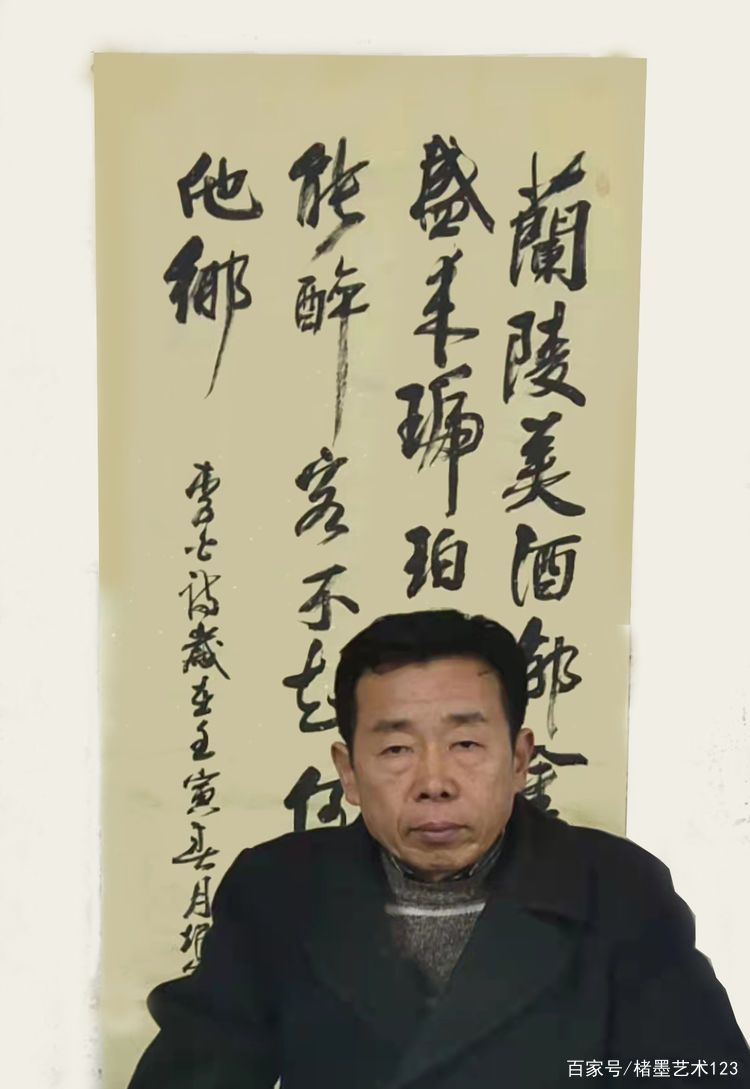 蘭陵美酒郁金
盛来琥珀
能醉客不知何
他鄉
李白诗歲在壬寅春月
百家号/楮墨艺术123